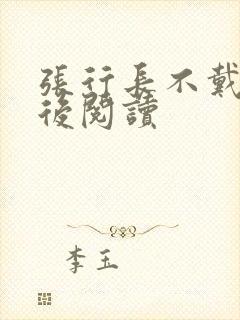 張行長不戴
後閱讀
李玉